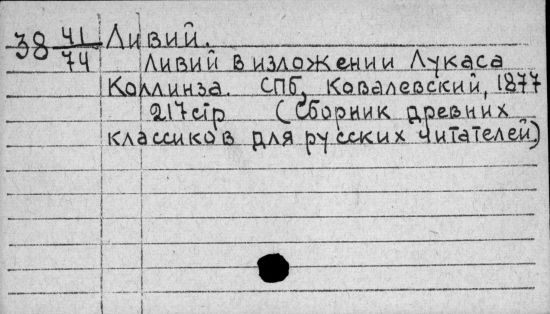 38 41/74 Ливий.
Ливий в изложении Лукаса
Коллинза. СПб, Ковалевский, 1877
217стр (Сборник древних
классиков для русских читателей)